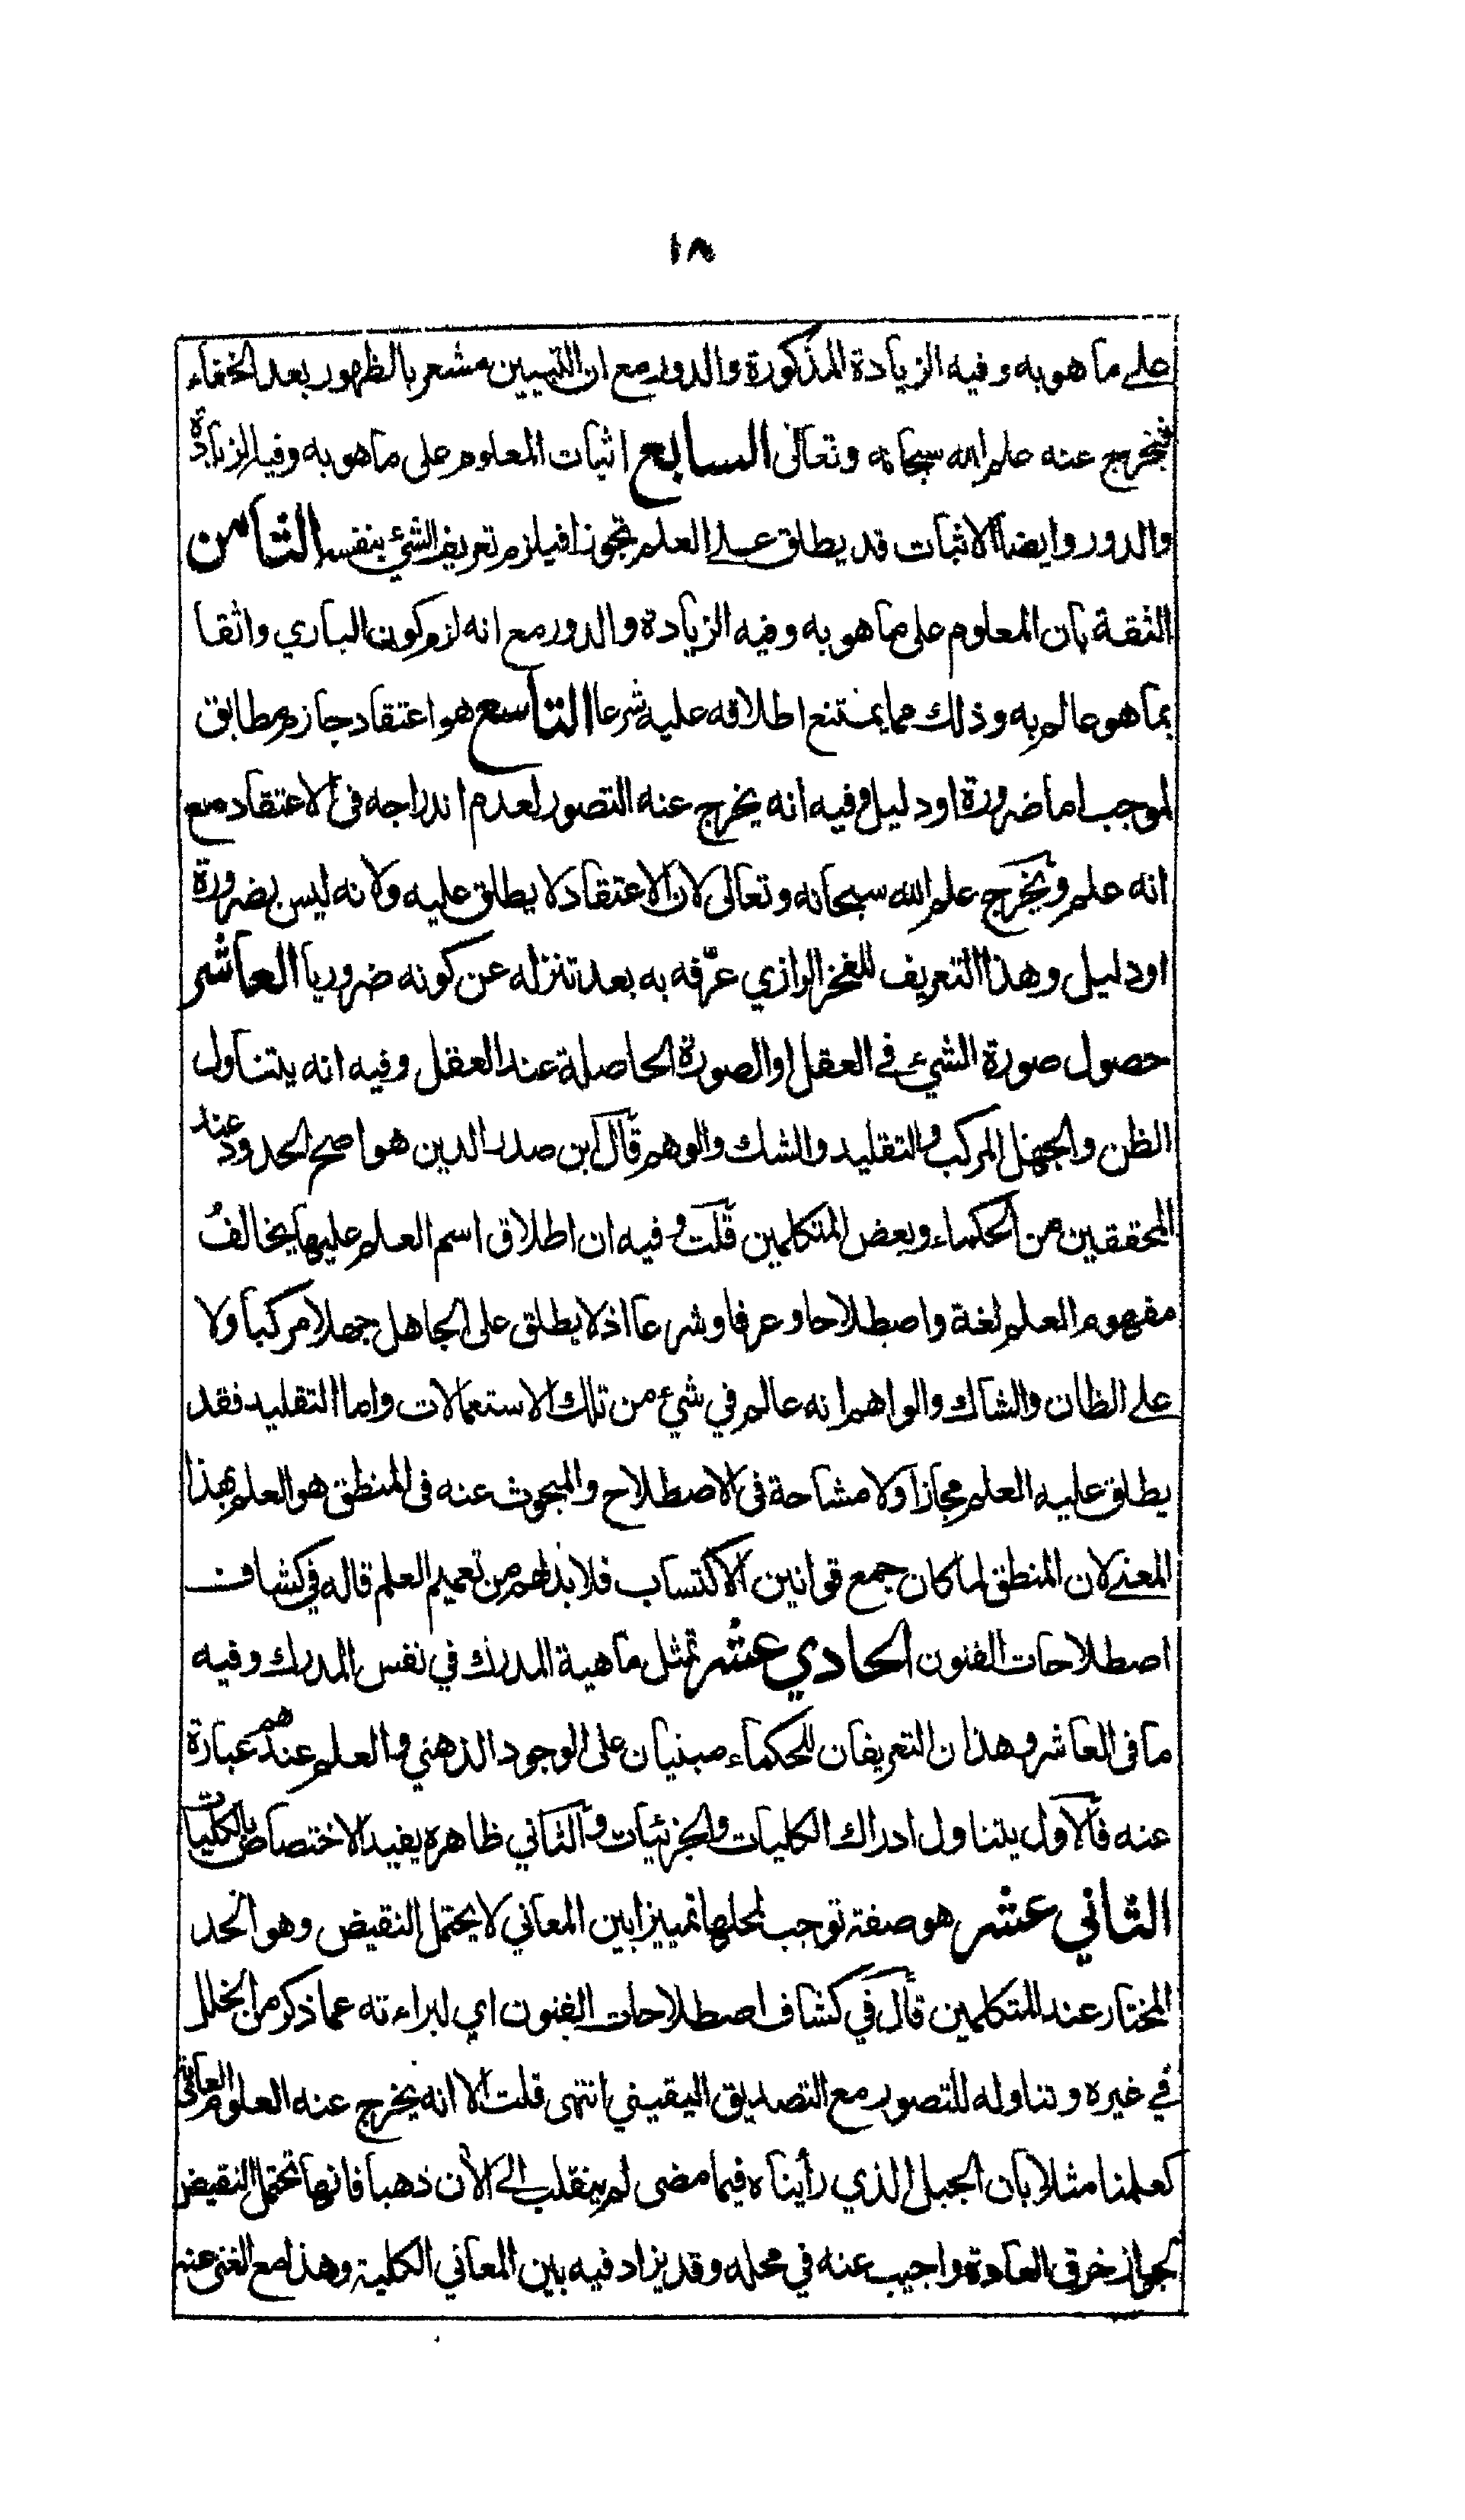 ١٨
على ما هو به وفيه الزيادة المذكورة والدور مع ان التبيين مشعر بالظهور بعد الخفاء
فيخرج عنه علم الله سبحانه وتعالى السابع اثبات المعلوم على ما هو به وفيه الزيادة
والدور وايضا الاثبات قد يطلق على العلم تجوزا فيلزم تعريف الشئ بنفسه الثامن
الثقة بان المعلوم على ما هو به وفيه الزيادة والدور مع انه لزم كون الباري واثقا
بما هو عالم به وذلك مما يمتنع اطلاقه عليه شرعا التاسع هو اعتقاد جازم مطابق
لموجب اما ضرورة او دليل وفيه انه يخرج عنه التصور لعدم اندراجه في الاعتقاد مع
انه علم ويخرج علم الله سبحانه وتعالى لان الاعتقاد لا يطلق عليه ولانه ليس بضرورة
او دليل وهذا التعريف للفخر الرازي عرّفه به بعد تنزله عن كونه ضروريا العاشر
حصول صورة الشيء في العقل او الصورة الحاصلة عند العقل وفيه انه يتناول
الظن والجهل المركب والتقليد والشك والوهم قال ابن صدر الدين هو اصح الحدود عند
المحققين من الحكماء وبعض المتكلمين قلت وفيه ان اطلاق اسم العلم عليها يخالفُ
مفهوم العلم لغة واصطلاحا وعرفا وشرعا اذ لا يطلق على الجاهل جهلا مركبا ولا
على الظان والشاك والواهم انه عالم في شيء من تلك الاستعمالات واما التقليد فقد
يطلق عليه العلم مجازا ولا مشاحة في الاصطلاح والمبحوث عنه في المنطق هو العلم بهذا
المعنى لان المنطق لما كان جمع قوانين الاكتساب فلا بد لهم من تعميم العلم قاله في كشاف
اصطلاحات الفنون الحادي عشر تمثل ماهية المدرك في نفس المدرك وفيه
ما في العاشر وهذان التعريفان للحكماء مبنيان على الوجود الذهني والعلم عندهم عبارة
عنه فالاول يتناول ادراك الكليات والجزئيات والثاني ظاهره يفيد الاختصاص بالكليات
الثاني عشر هو صفة توجب لمحلها تمييزا بين المعاني لا يحتمل النقيض وهو الحد
المختار عند المتكلمين قال في كشاف اصطلاحات الفنون اي لبراءته عما ذكر من الخلل
في غيره وتناوله للتصور مع التصديق اليقيني انتهى قلت الا انه يخرج عنه العلوم العادية
كعلمنا مثلا بان الجبل الذي رأيناه فيما مضى لم ينقلب الى الآن ذهبا فانها تحتمل النقيض
لجواز خرق العادة واجيب عنه في محله وقد يزاد فيه بين المعاني الكلية وهذا مع الغنى عنه